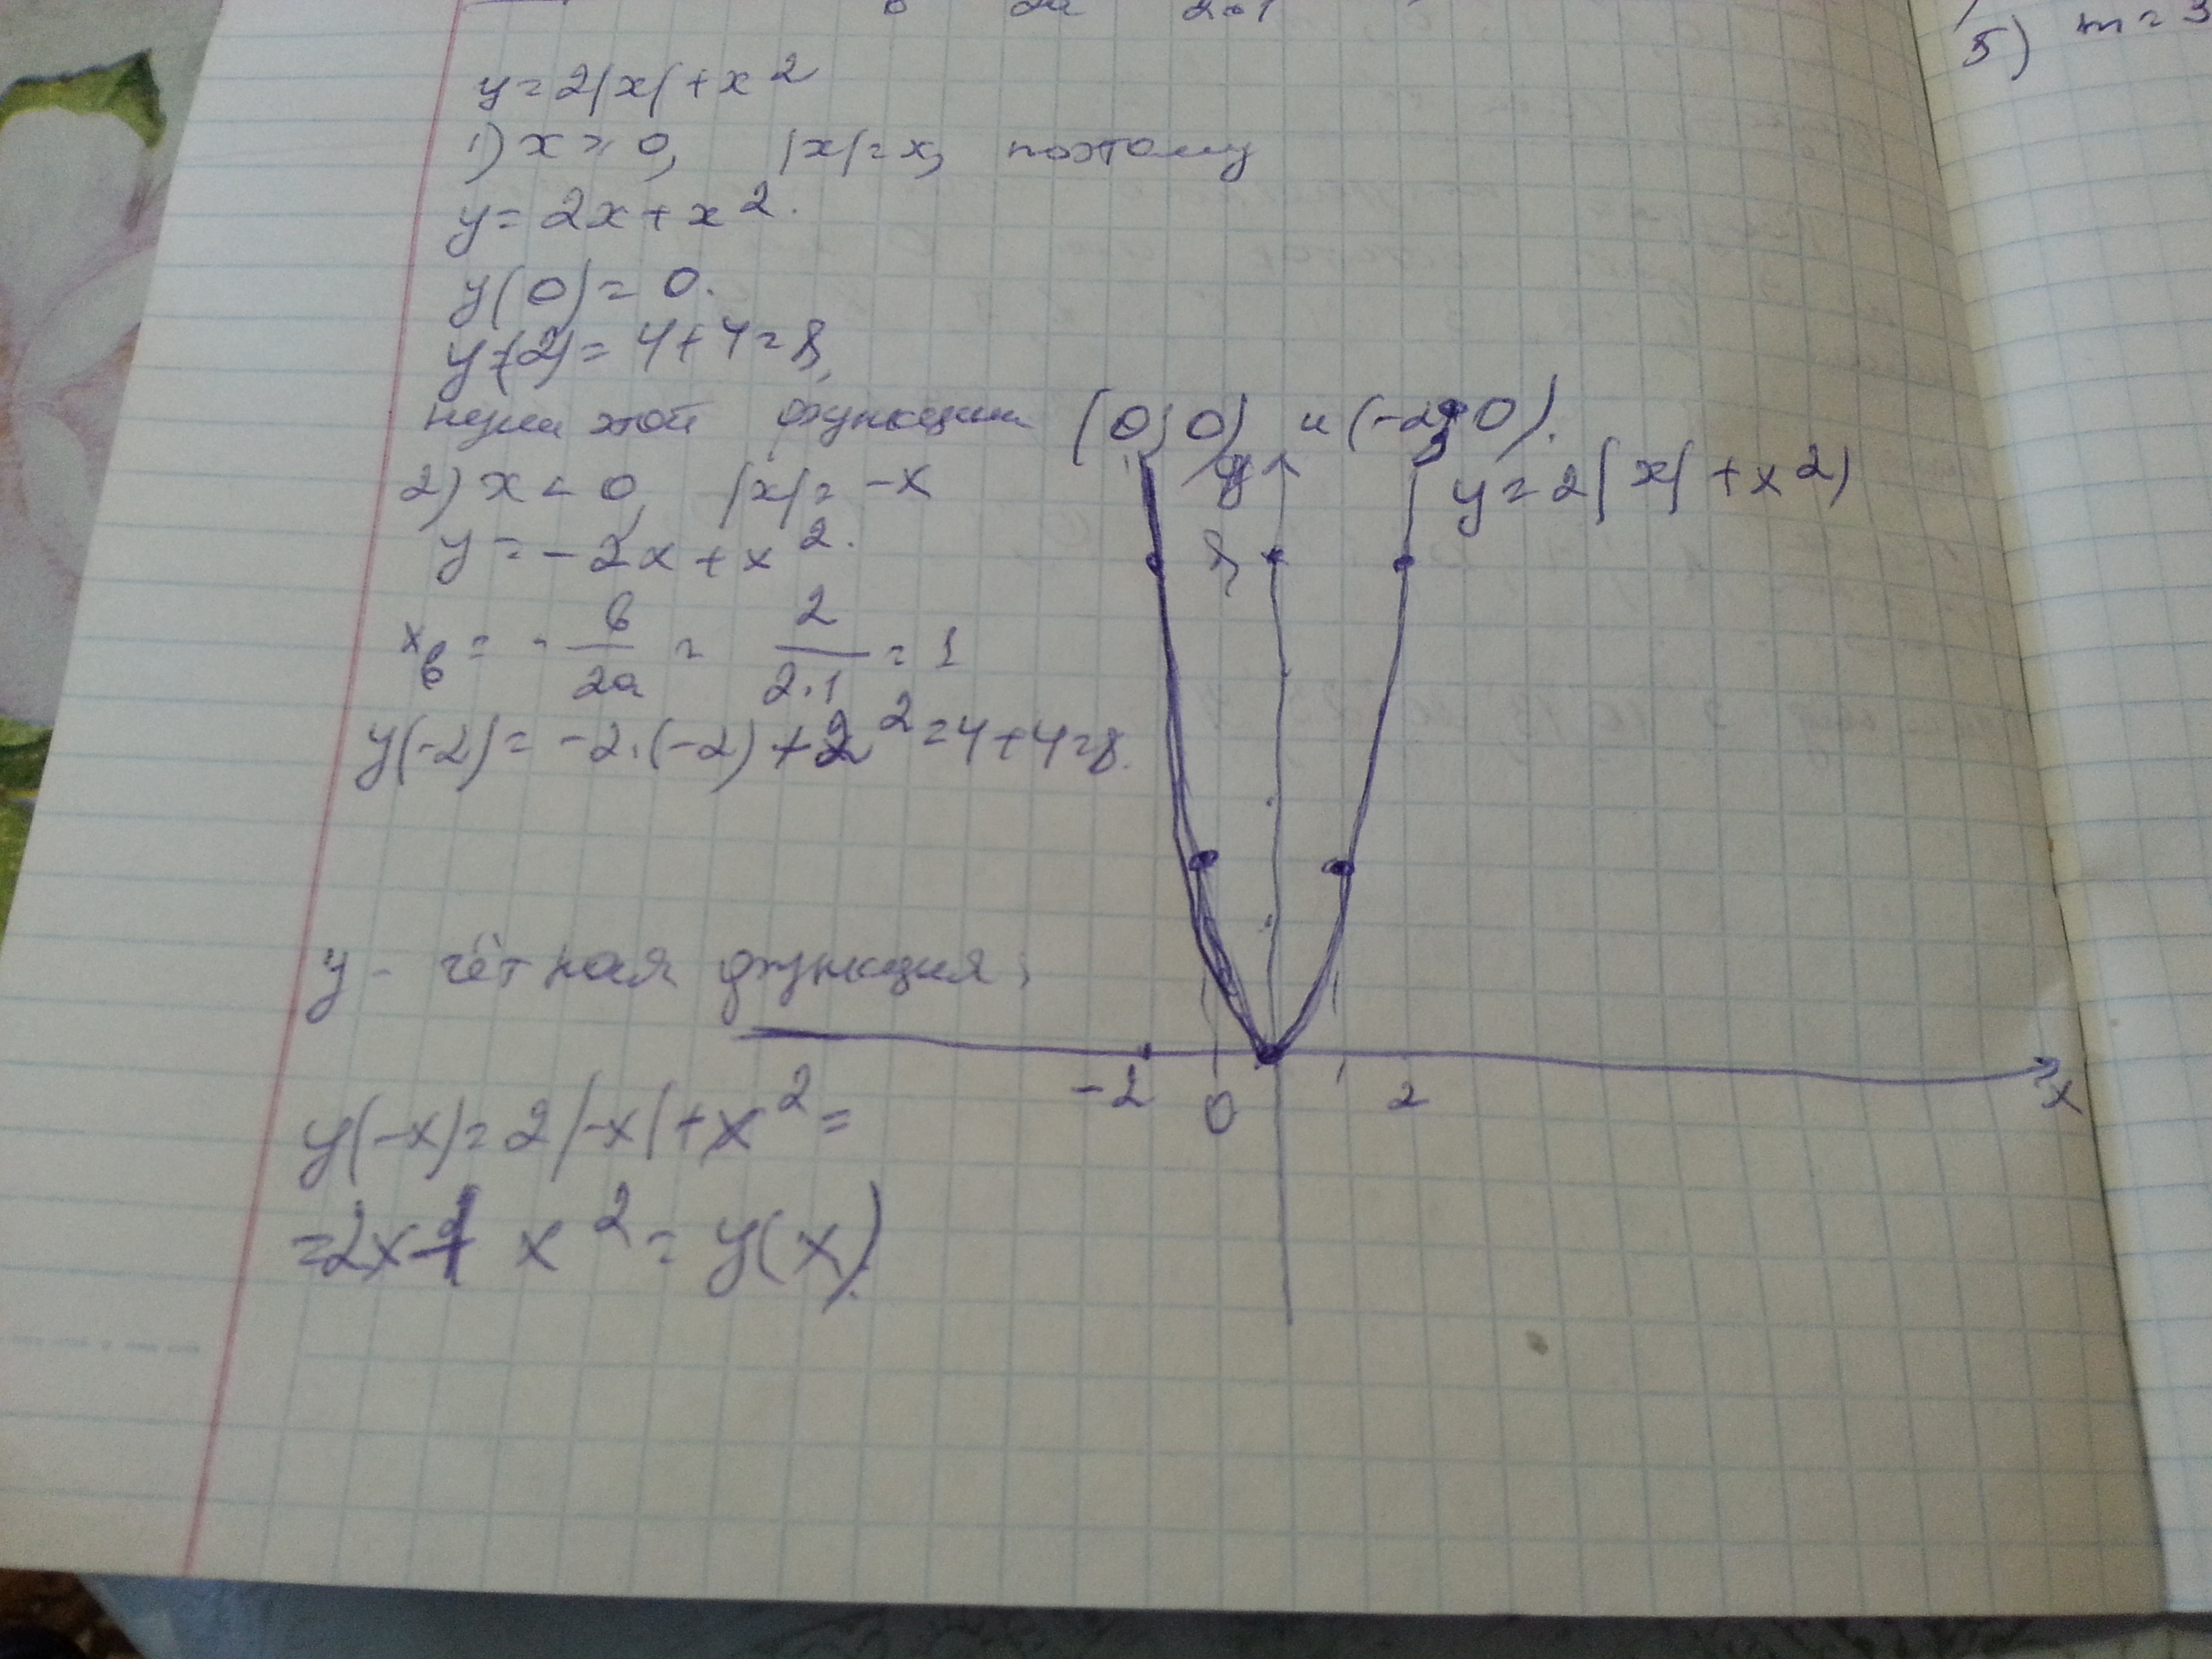 2·1
5) m = 3
y = 2|x| + x²
1) x ≥ 0, |x| = x, поэтому
y = 2x + x².
y(0) = 0.
y(2) = 4 + 4 = 8,
нули этой функции (0; 0) и (-2; 0).
2) x < 0, |x| = -x
y = -2x + x².
xв = - в/2a = 2/2·1 = 1
y(-2) = -2·(-2) + 2² = 4 + 4 = 8.
y
y = 2|x| + x²)
8
y - чётная функция;
-2 0 1 2 x
y(-x) = 2|-x| + x² =
= 2x + x² = y(x).